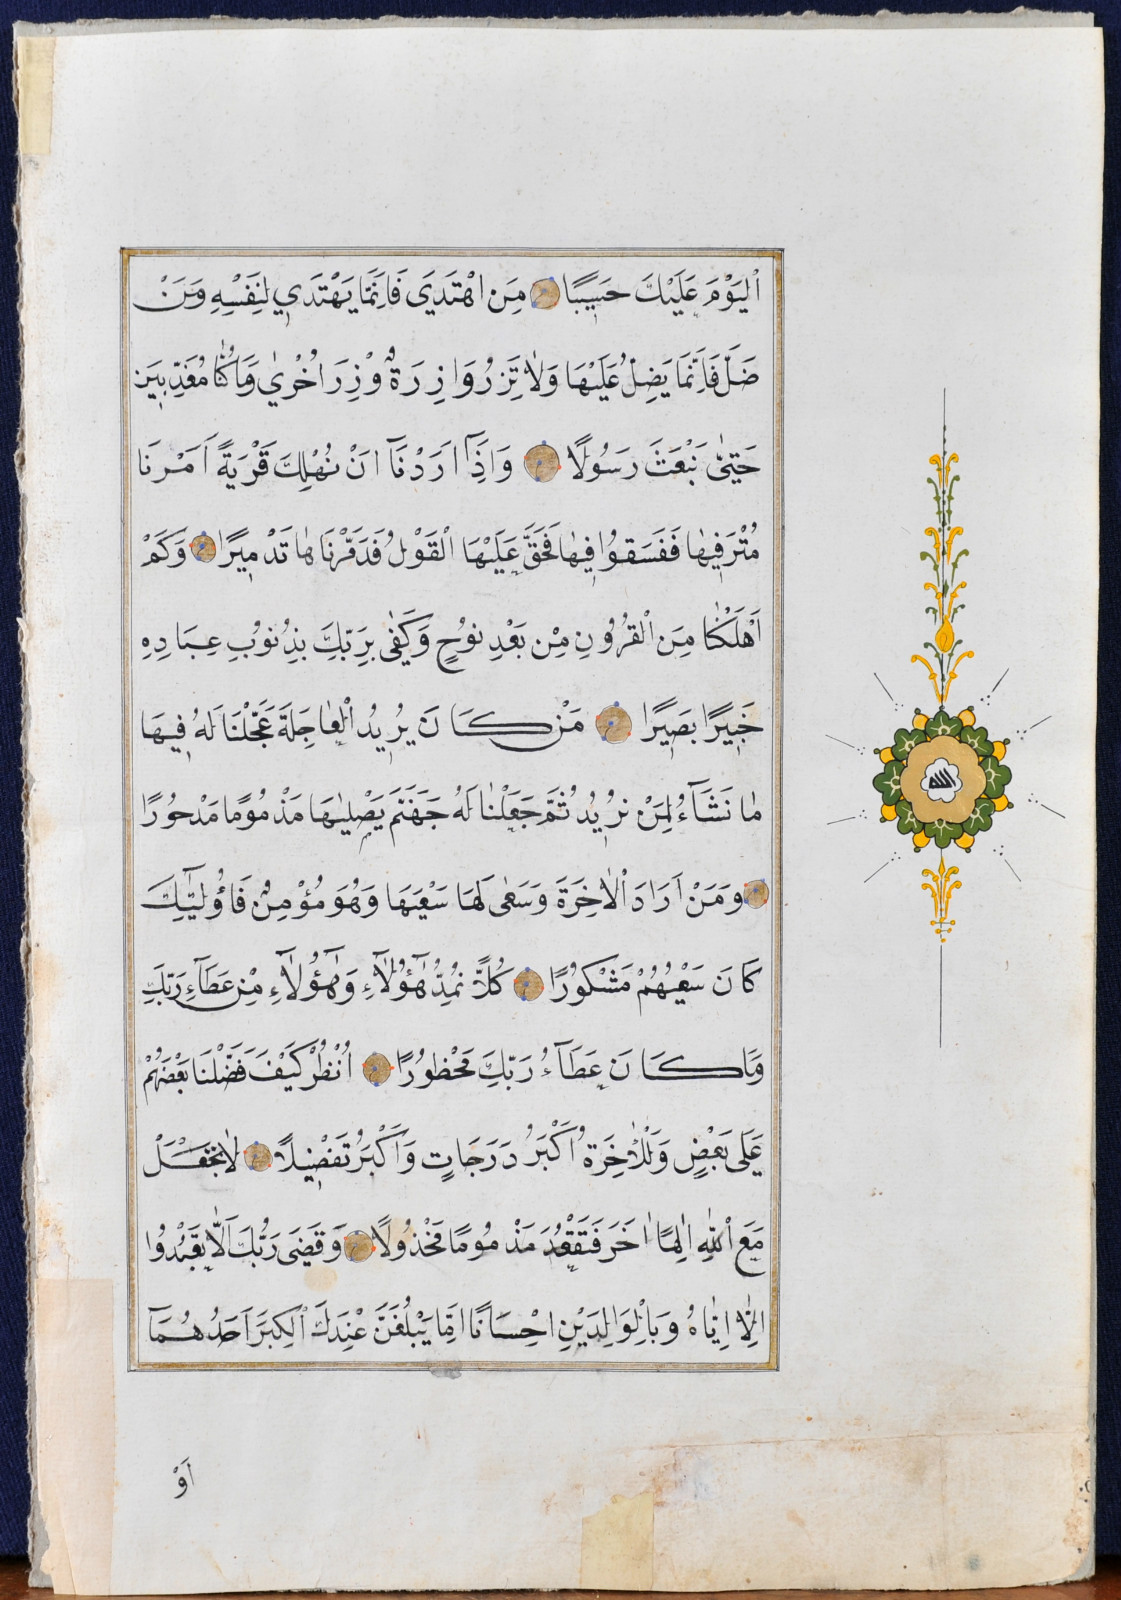 اَلْيَوْمَ عَلَيْكَ حَسٖيبًا مَنِ اهْتَدٰى فَاِنَّمَا يَهْتَدٖي لِنَفْسِهٖ وَمَنْ
ضَلَّ فَاِنَّمَا يَضِلُّ عَلَيْهَا وَلَا تَزِرُ وَازِرَةٌ وِزْرَ اُخْرٰى وَمَا كُنَّا مُعَذِّبٖينَ
حَتّٰى نَبْعَثَ رَسُولًا وَاِذَٓا اَرَدْنَٓا اَنْ نُهْلِكَ قَرْيَةً اَمَرْنَا
مُتْرَفٖيهَا فَفَسَقُوا فٖيهَا فَحَقَّ عَلَيْهَا الْقَوْلُ فَدَمَّرْنَاهَا تَدْمٖيرًا وَكَمْ
اَهْلَكْنَا مِنَ الْقُرُونِ مِنْ بَعْدِ نُوحٍ وَكَفٰى بِرَبِّكَ بِذُنُوبِ عِبَادِهٖ
خَبٖيرًا بَصٖيرًا مَنْ كَانَ يُرٖيدُ الْعَاجِلَةَ عَجَّلْنَا لَهُ فٖيهَا
مَا نَشَٓاءُ لِمَنْ نُرٖيدُ ثُمَّ جَعَلْنَا لَهُ جَهَنَّمَ يَصْلٰيهَا مَذْمُومًا مَدْحُورًا
وَمَنْ اَرَادَ الْاٰخِرَةَ وَسَعٰى لَهَا سَعْيَهَا وَهُوَ مُؤْمِنٌ فَاُولٰٓئِكَ
كَانَ سَعْيُهُمْ مَشْكُورًا كُلًّا نُمِدُّ هٰٓؤُلَٓاءِ وَهٰٓؤُلَٓاءِ مِنْ عَطَٓاءِ رَبِّكَ
وَمَا كَانَ عَطَٓاءُ رَبِّكَ مَحْظُورًا اُنْظُرْ كَيْفَ فَضَّلْنَا بَعْضَهُمْ
عَلٰى بَعْضٍ وَلَلْاٰخِرَةُ اَكْبَرُ دَرَجَاتٍ وَاَكْبَرُ تَفْضٖيلًا لَا تَجْعَلْ
مَعَ اللّٰهِ اِلٰهًا اٰخَرَ فَتَقْعُدَ مَذْمُومًا مَخْذُولًا وَقَضٰى رَبُّكَ اَلَّا تَعْبُدُوا
اِلَّٓا اِيَّاهُ وَبِالْوَالِدَيْنِ اِحْسَانًا اِمَّا يَبْلُغَنَّ عِنْدَكَ الْكِبَرَ اَحَدُهُمَٓا
اَوْ
الله